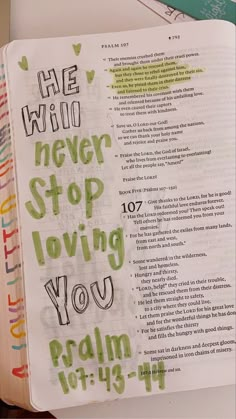 PSALM 107
HE
Will
never
Stop
loving
You
Psalm
107:43
Then enemies crushed them
and brought them under their cruel power.
Again and again he rescued them,
but they chose to rebel against him,
and they were finally destroyed by their sin.
Even so, he pitied them in their distress
and listened to their cries.
He remembered his covenant with them
and relented because of his unfailing love.
He even caused their captors
to treat them with kindness.
Save us, O LORD our God!
Gather us back from among the nations,
so we can thank your holy name
and rejoice and praise you.
Praise the LORD, the God of Israel,
who lives from everlasting to everlasting!
Let all the people say, "Amen!"
Praise the LORD!
107
Give thanks to the LORD, for he is good!
His faithful love endures forever.
Has the LORD redeemed you? Then speak out!
Tell others he has redeemed you from your
enemies.
For he has gathered the exiles from many lands,
from east and west,
from north and south.
Some wandered in the wilderness,
lost and homeless.
Hungry and thirsty,
they nearly died.
"LORD, help!" they cried in their trouble,
and he rescued them from their distress.
He led them straight to safety,
to a city where they could live.
Let them praise the LORD for his great love
and for the wonderful things he has done for them.
For he satisfies the thirsty
and fills the hungry with good things.
Some sat in darkness and deepest gloom,
imprisoned in iron chains of misery.